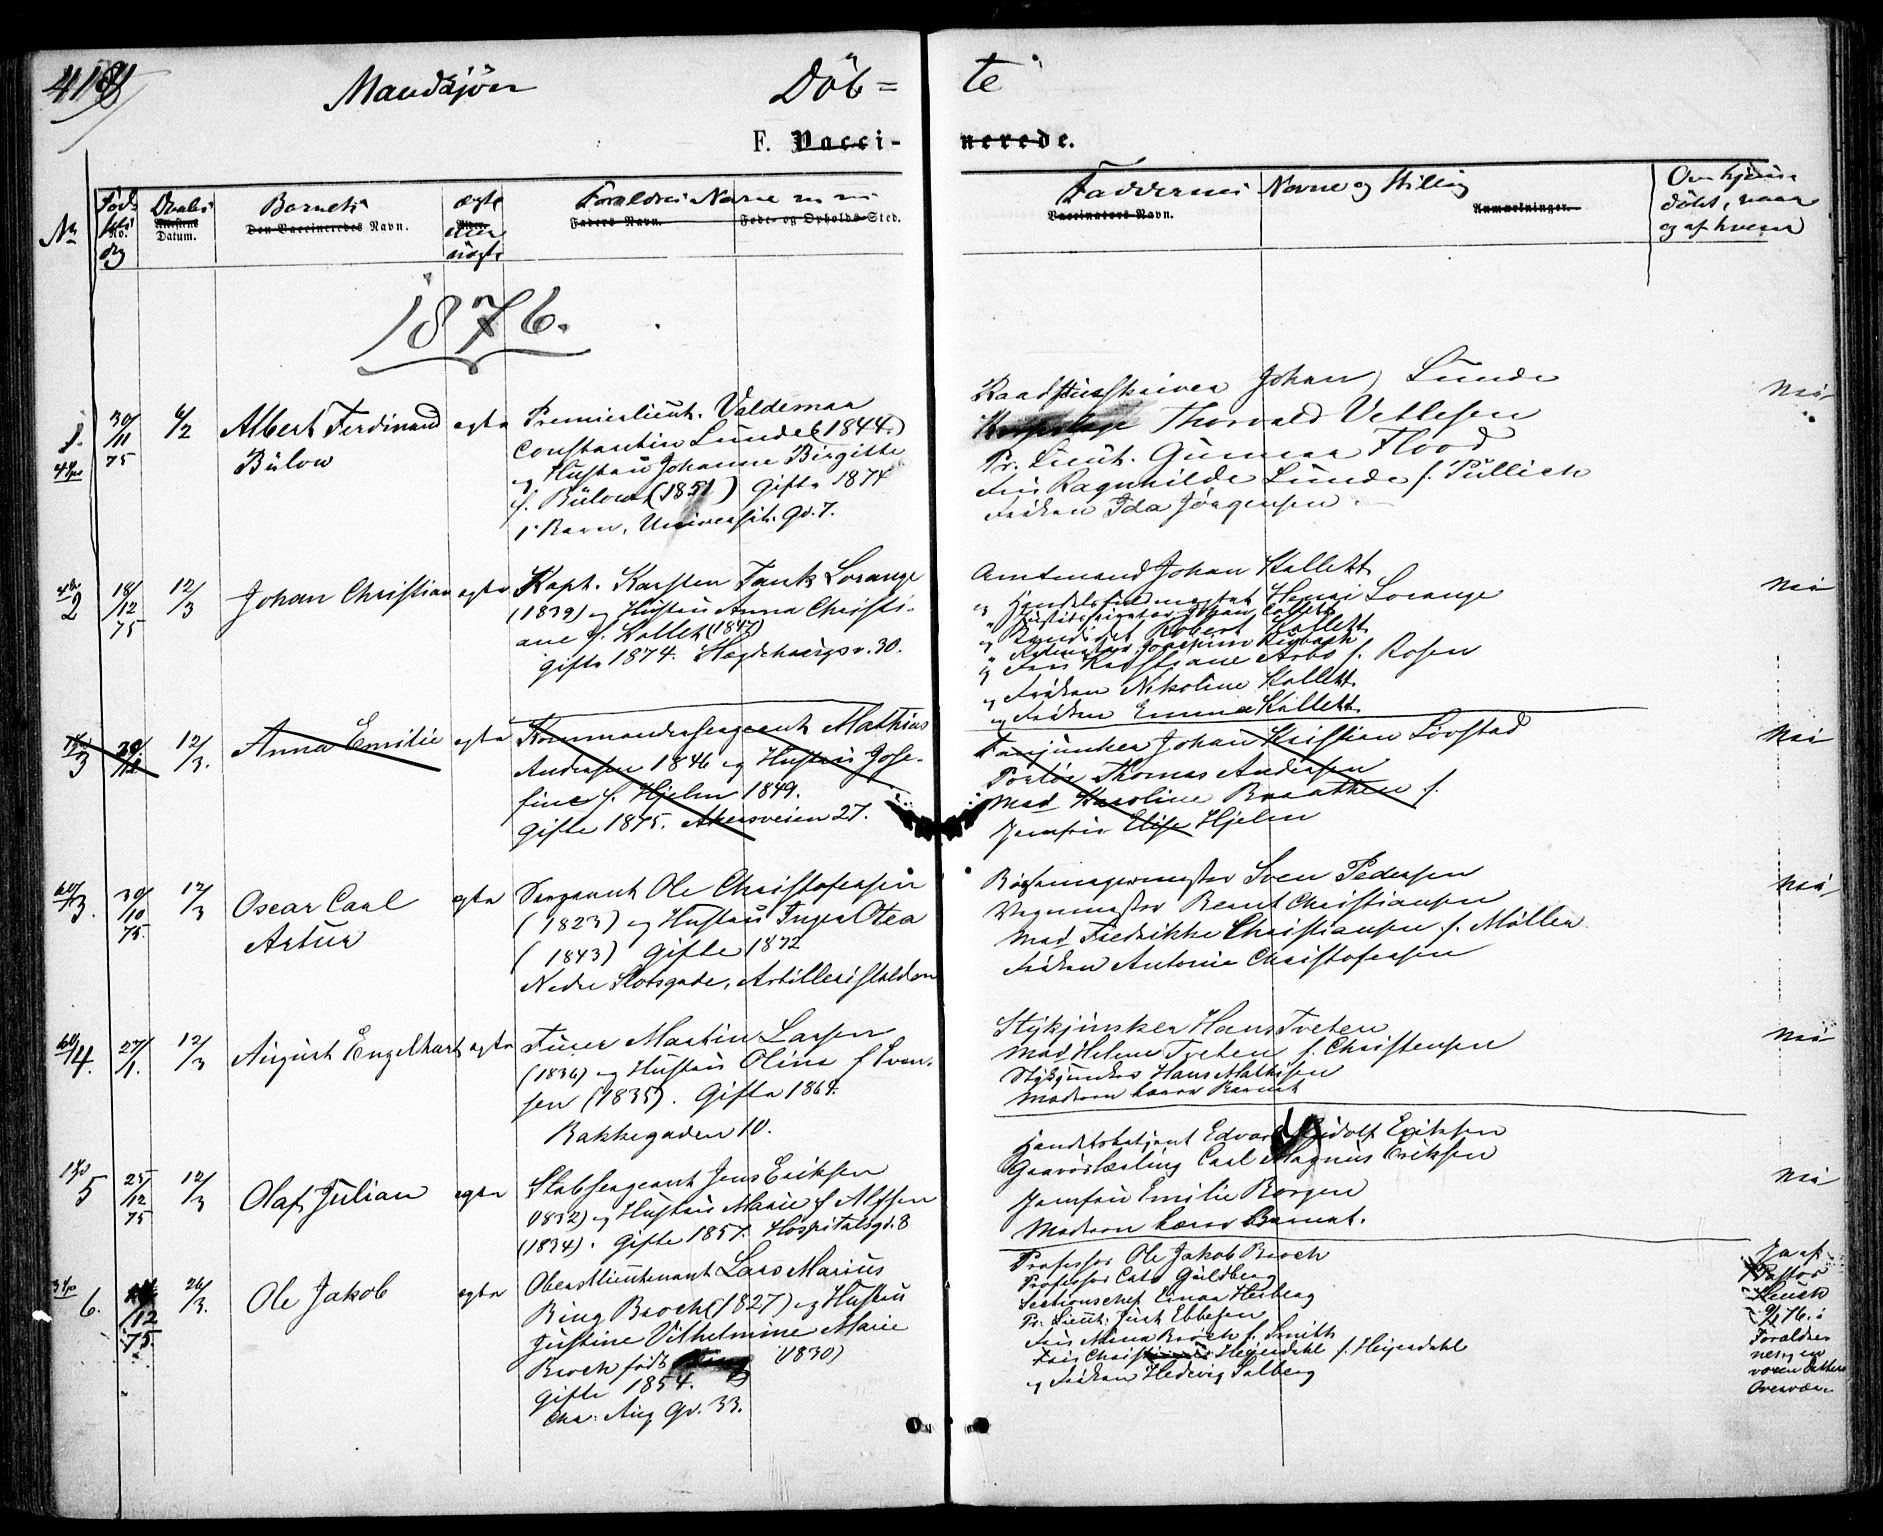 Mandkjøn
Döb=
te
F. Vacci-
nerede.
No
Föd-
No.
dg
Daabs
Datum.
Barnets
Den Vaccineredes Navn.
ægte
eller
uægte
Forældres Navne
Faders Navn.
Føde- og Opholds-Sted.
Faddernes Navne og Stilling
Vaccinators Navn.
Anmærkninger.
Om hjemme-
döbt, naar
og af hvem
1876.
1.
30/11 75
6/2
Albert Ferdinand
Bülow
egte
Premierlieut. Valdemar
Constantin Lunde (1844.)
og Hustru Johanne Birgitte
f. Bülow (1851) Gifte 1874
1 Barn, Universit. Gd. 7.
Raadstueskriver Johan Lunde
Thorvald Vetlesen
Pr. Lieut. Gunnar Flood
Fru Ragnhilde Lunde f. Püllich
Fröken Ida Jörgensen
Nei
2
18/12 75
12/3
Johan Christian
egte
Kapt. Karsten Tank Lorange
(1839) og Hustru Anna Christi-
ane f. Kollett (1847)
gifte 1874. Hegdehaugsv. 30.
Amtmand Johan Kollett
og Handelsfuldmægtig Henri Lorange
og Kandidat Robert Kollett
og Fru Kristiane Arbo f. Rosen
og Fröken Nikoline Kollett
og Fröken Emma Kollett
Nei
3
12/3.
Anna Emilie
egte
Kommandersergeant Mathias
Andersen 1846 og Hustru Jose-
fine f. Hjelm 1849.
Gifte 1875. Akersveien 27.
Fanejunker Johan Kristian Lövstad
Portör Thomas Andersen
Mad Karoline Braathen f.
Jomfru Elise Hjelm
Nei
3.
30/10 75.
12/3
Oscar Carl
Artur
egte
Sergeant Ole Christofersen
(1823) og Hustru Inger Otea
(1843) Gifte 1872
Nedre Slotsgade, Artilleristalden
Bössemagermester Sven Pedersen
Vognmester Bernt Christiansen
Mad Fredrikke Christiansen f. Möller
Fröken Antonie Christofersen
Nei
4.
27/1.
12/3
August Engelhart
egte
Furer Martin Larsen
(1836) og Hustru Olina f Sven-
sen (1835). Gifte 1864.
Bakkegaden 10.
Stykjunker Hans Tveten
Mad Helene Tveten f. Christensen
Stykjunker Hans Mathisen
Modren baarer Barnet
Nei
5
25/12 75
12/3
Olaf Julian
egte
Stabsergeant Jens Eriksen
(1832) og Hustru Marie f Alfsen
(1834). Gifte 1857. Hospitalsgd. 8
Handelsbetjent Edvard Rudolf Eriksen
Gravörlærling Carl Magnus Eriksen
Jomfru Emilie Borgen
Modren bærer Barnet.
Nei
6.
/12 75.
26/3.
Ole Jakob
egte
Oberstlieutenant Lars Marius
Bing Broch (1827) og Hustru
Justine Vilhelmine Marie
Broch født (1830)
Gifte 1854.
Chr: Aug Gd. 33.
Professor Ole Jakob Broch
Professor Cato Guldberg
Sectionschef Einar Heiberg
Pr. Lieut. Just Ebbesen
Fru Mina Broch f. Smith
Heyerdahl f. Heyerdahl
og Fröken Hedevig Solberg
Ja af
Pastor
76. i
Forældre